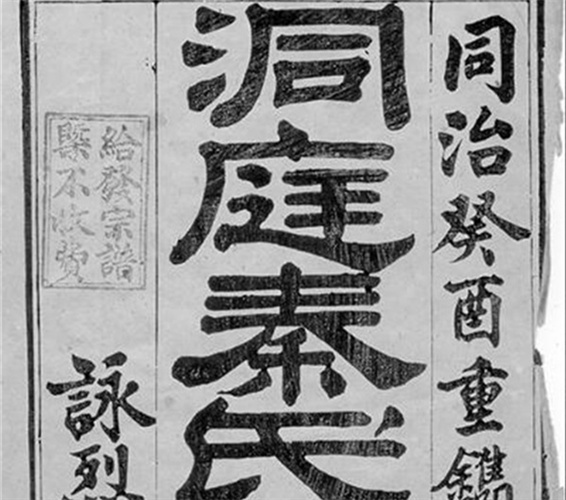 同治癸酉重鐫
洞庭秦氏
給發宗譜
槩不收費
詠烈